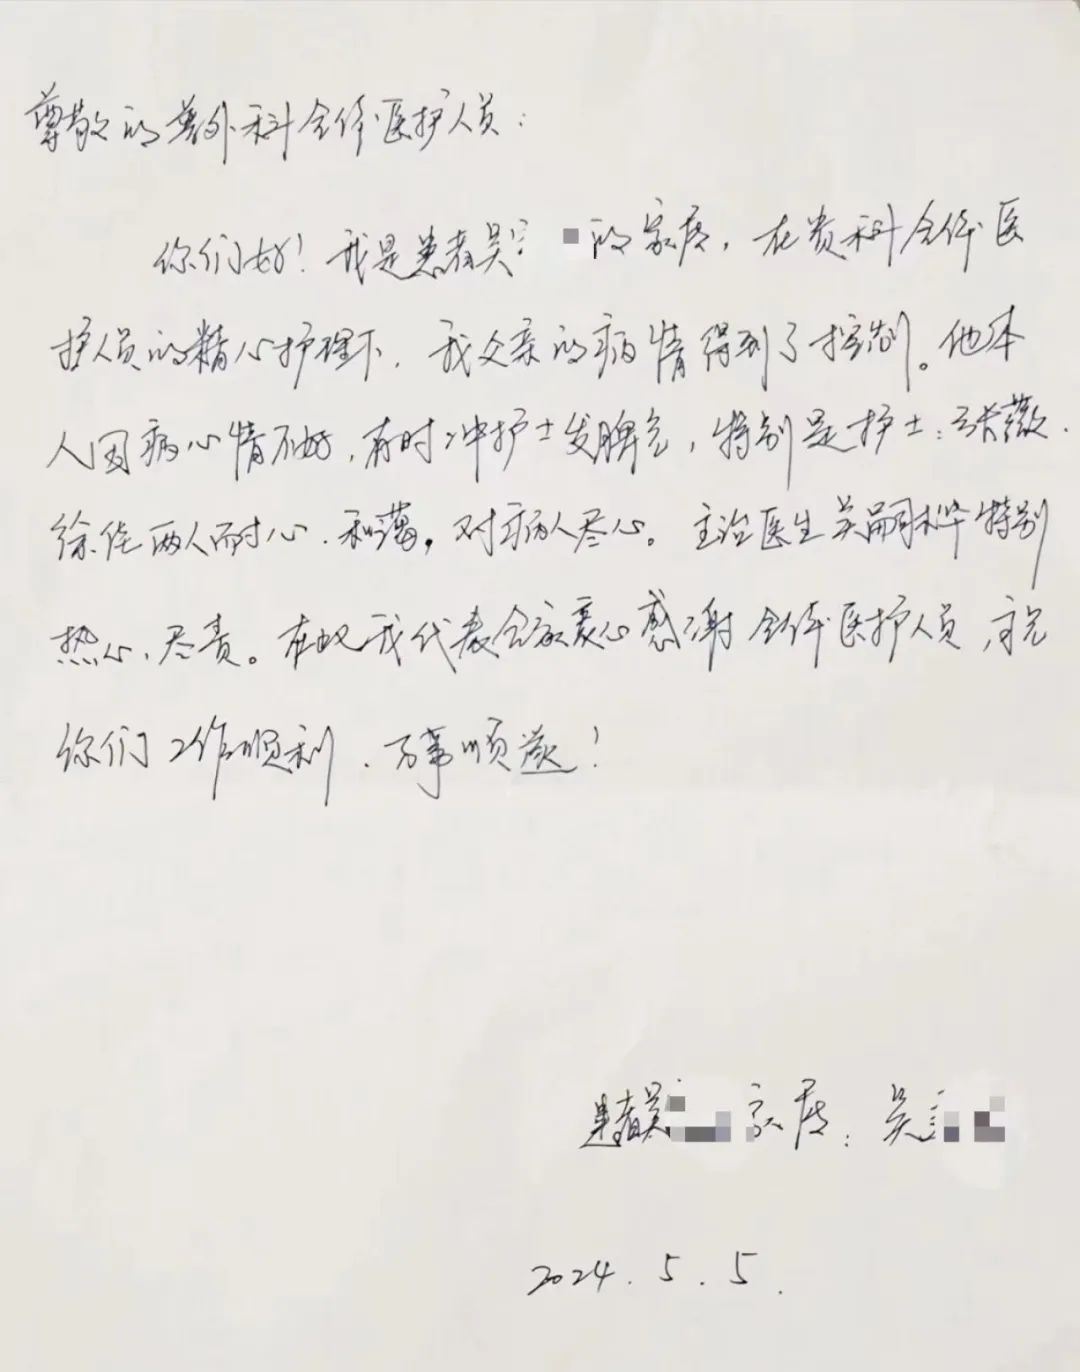 尊敬的普外科全体医护人员:
你们好!我是患者吴 的家属,在贵科全体医
护人员的精心护理下,我父亲的病情得到了控制。他本
人因病心情不好,有时冲护士发脾气,特别是护士:张薇.
徐佳两人耐心.和蔼,对病人尽心。主治医生吴嗣桦特别
热心、尽责。在此我代表全家衷心感谢全体医护人员,祝
你们工作顺利.万事顺意!
患者吴 家属:吴
2024.5.5.